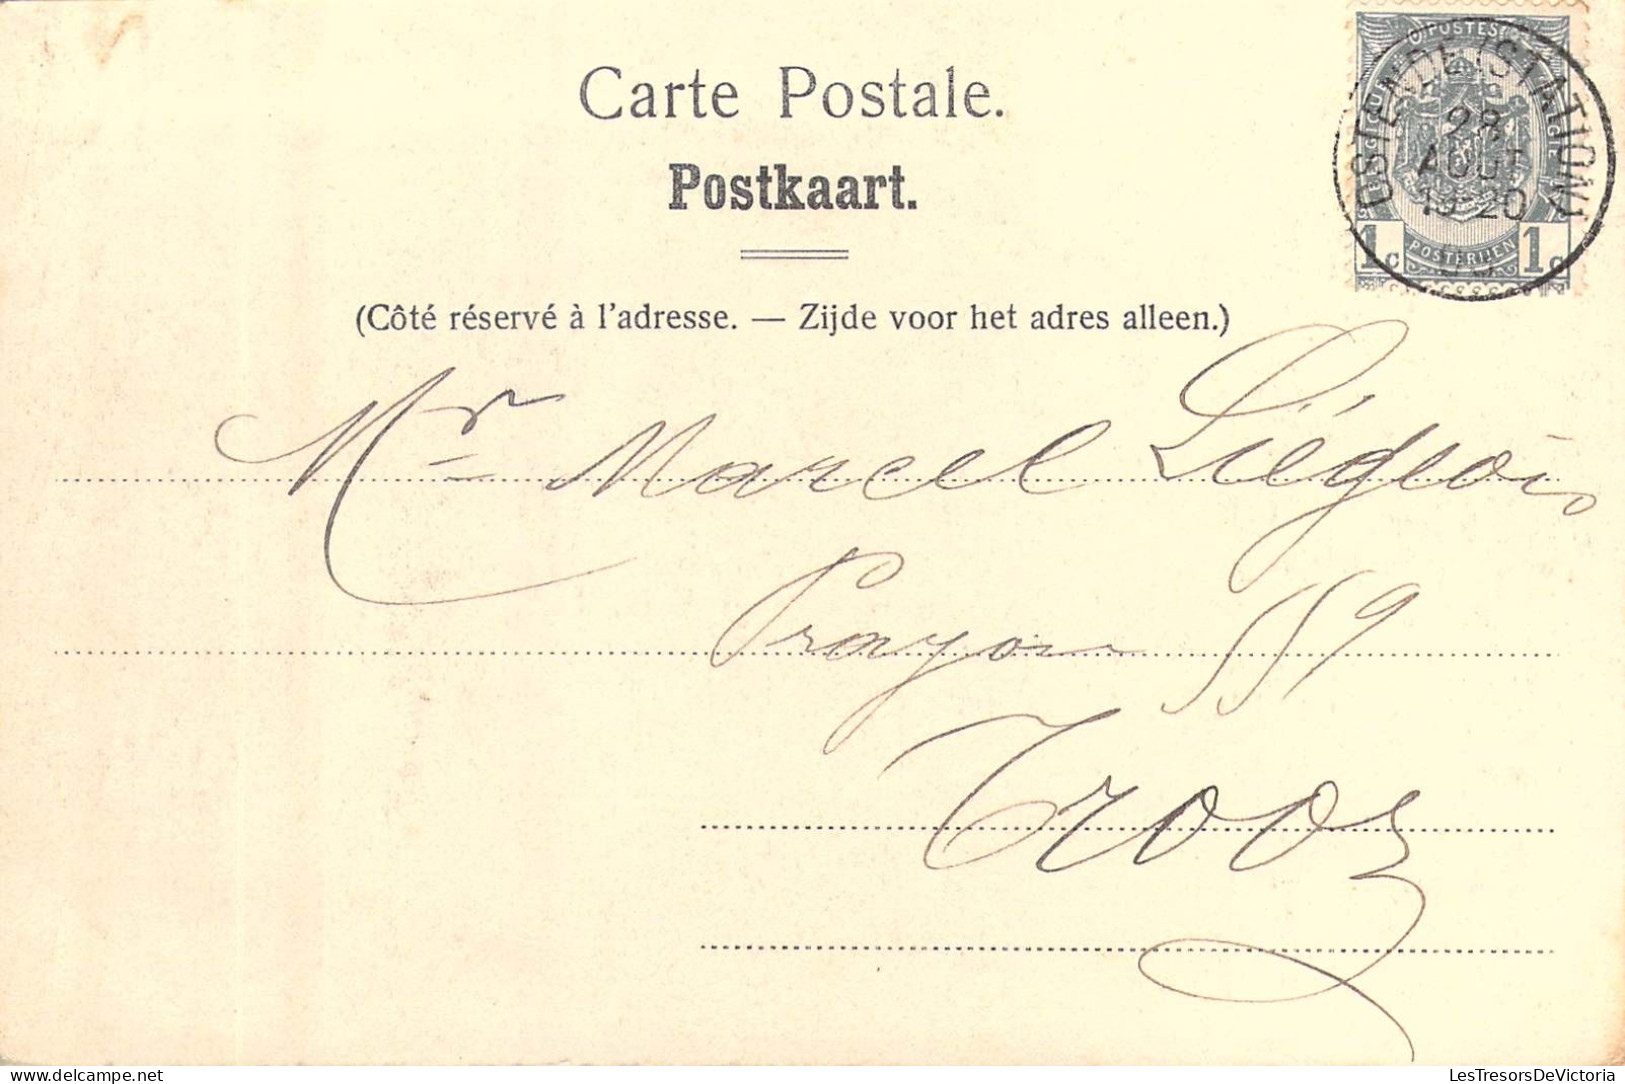 Carte Postale.
Postkaart.
(Côté réservé à l'adresse. — Zijde voor het adres alleen.)
POSTES
BELGIQUE BELGIE
1c POSTERIJEN 1c
OSTENDE (STATION)
28
AOUT
19-20
Mr Marcel Liégeois
Prayon 559
Trooz
LesTresorsDeVictoria